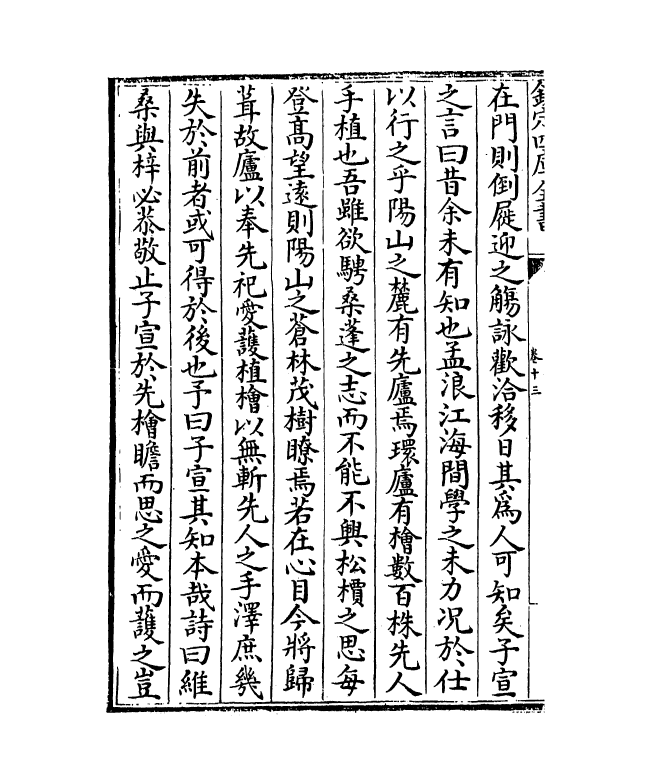 欽定四庫全書
卷十三
在門則倒屣迎之觴詠歡洽移日其爲人可知矣子宣
之言曰昔余未有知也孟浪江海間學之未力况於仕
以行之乎陽山之麓有先廬焉環廬有檜數百株先人
手植也吾雖欲騁桑蓬之志而不能不興松檟之思每
登高望遠則陽山之蒼林茂樹瞭焉若在心目今將歸
葺故廬以奉先祀愛䕶植檜以無斬先人之手澤庶幾
失於前者或可得於後也予曰子宣其知本哉詩曰維
桑與梓必恭敬止子宣於先檜瞻而思之愛而䕶之豈